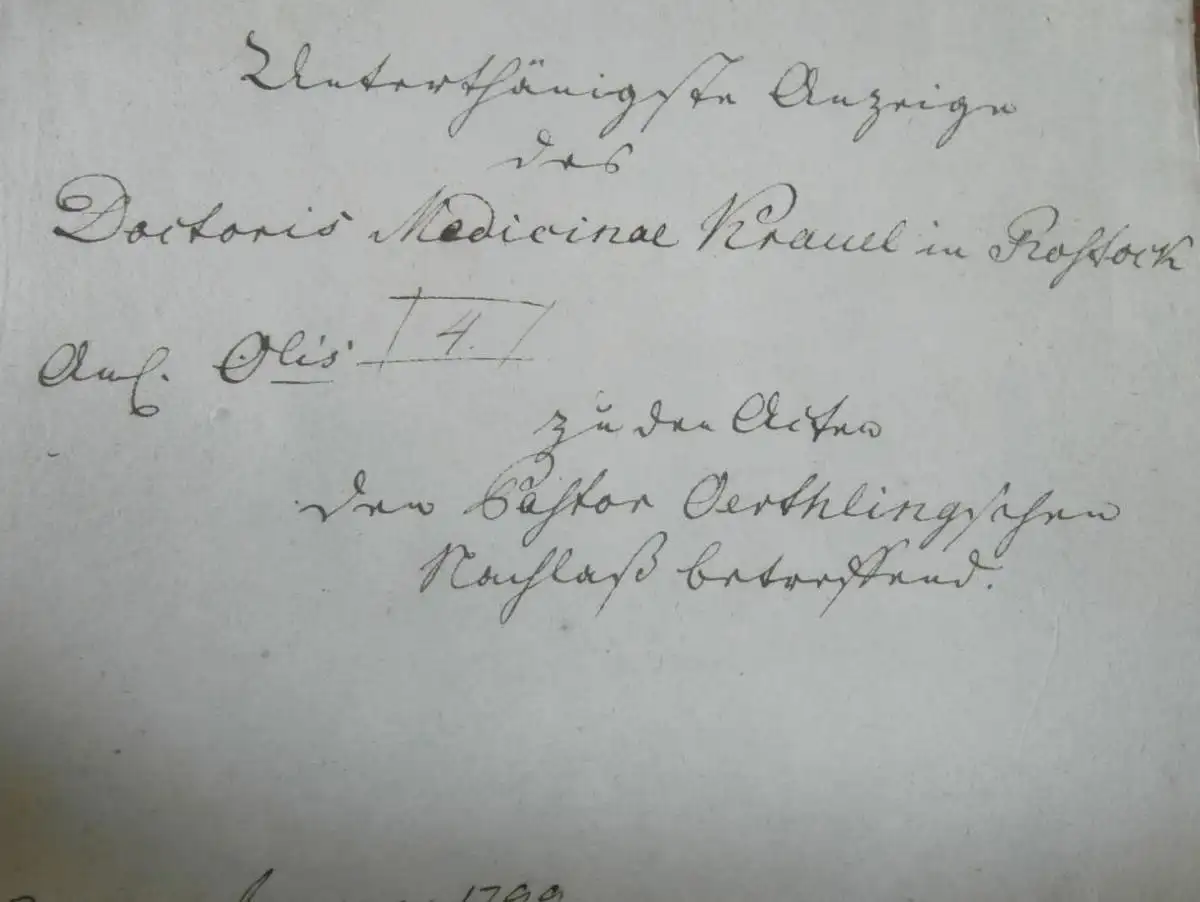 Unterthänigste Anzeige
des
Doctoris Medicinae Krauel in Rostock
4.
zu den Acten
den Pastor Oerthlingschen
Nachlaß betreffend.
1799